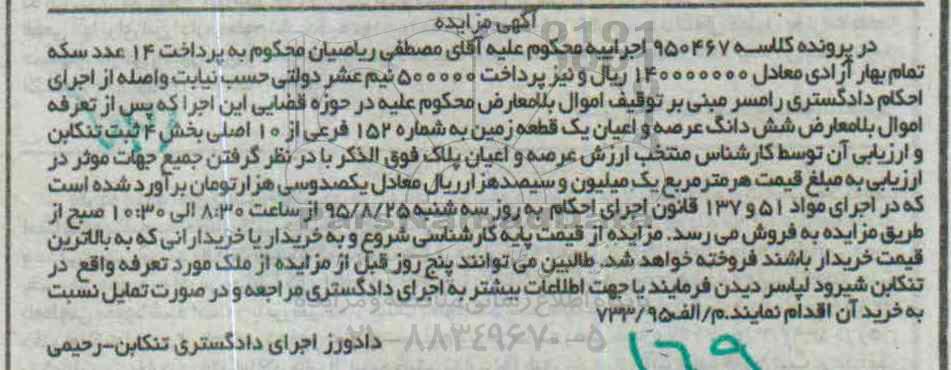 آگهی مزایده
در پرونده کلاسه ۹۵۰۴۶۷ اجراییه محکوم علیه آقای مصطفی ریاضیان محکوم به پرداخت ۱۴ عدد سکه
تمام بهار آزادی معادل ۱۴۰۰۰۰۰۰۰ ریال و نیز پرداخت ۵۰۰۰۰۰ نیم عشر دولتی حسب نیابت واصله از اجرای
احکام دادگستری رامسر مبنی بر توقیف اموال بلامعارض محکوم علیه در حوزه قضایی این اجرا که پس از تعرفه
اموال بلامعارض شش دانگ عرصه و اعیان یک قطعه زمین به شماره ۱۵۲ فرعی از ۱۰ اصلی بخش ۴ ثبت تنکابن
و ارزیابی آن توسط کارشناس منتخب ارزش عرصه و اعیان پلاک فوق الذکر با در نظر گرفتن جمیع جهات موثر در
ارزیابی به مبلغ قیمت هر متر مربع یک میلیون و سیصد هزار ریال معادل یکصد و سی هزار تومان برآورد شده است
که در اجرای مواد ۵۱ و ۱۳۷ قانون اجرای احکام به روز سه شنبه ۹۵/۸/۲۵ از ساعت ۸:۳۰ الی ۱۰:۳۰ صبح از
طریق مزایده به فروش می رسد. مزایده از قیمت پایه کارشناسی شروع و به خریدار یا خریدارانی که به بالاترین
قیمت خریدار باشند فروخته خواهد شد. طالبین می توانند پنج روز قبل از مزایده از ملک مورد تعرفه واقع در
تنکابن شیرود لپاسر دیدن فرمایند یا جهت اطلاعات بیشتر به اجرای دادگستری مراجعه و در صورت تمایل نسبت
به خرید آن اقدام نمایند.م/الف۷۳۳/۹۵
دادورز اجرای دادگستری تنکابن-رحیمی
۰۲۱-۸۸۳۴۹۶۷۰-۵
۱۶۹